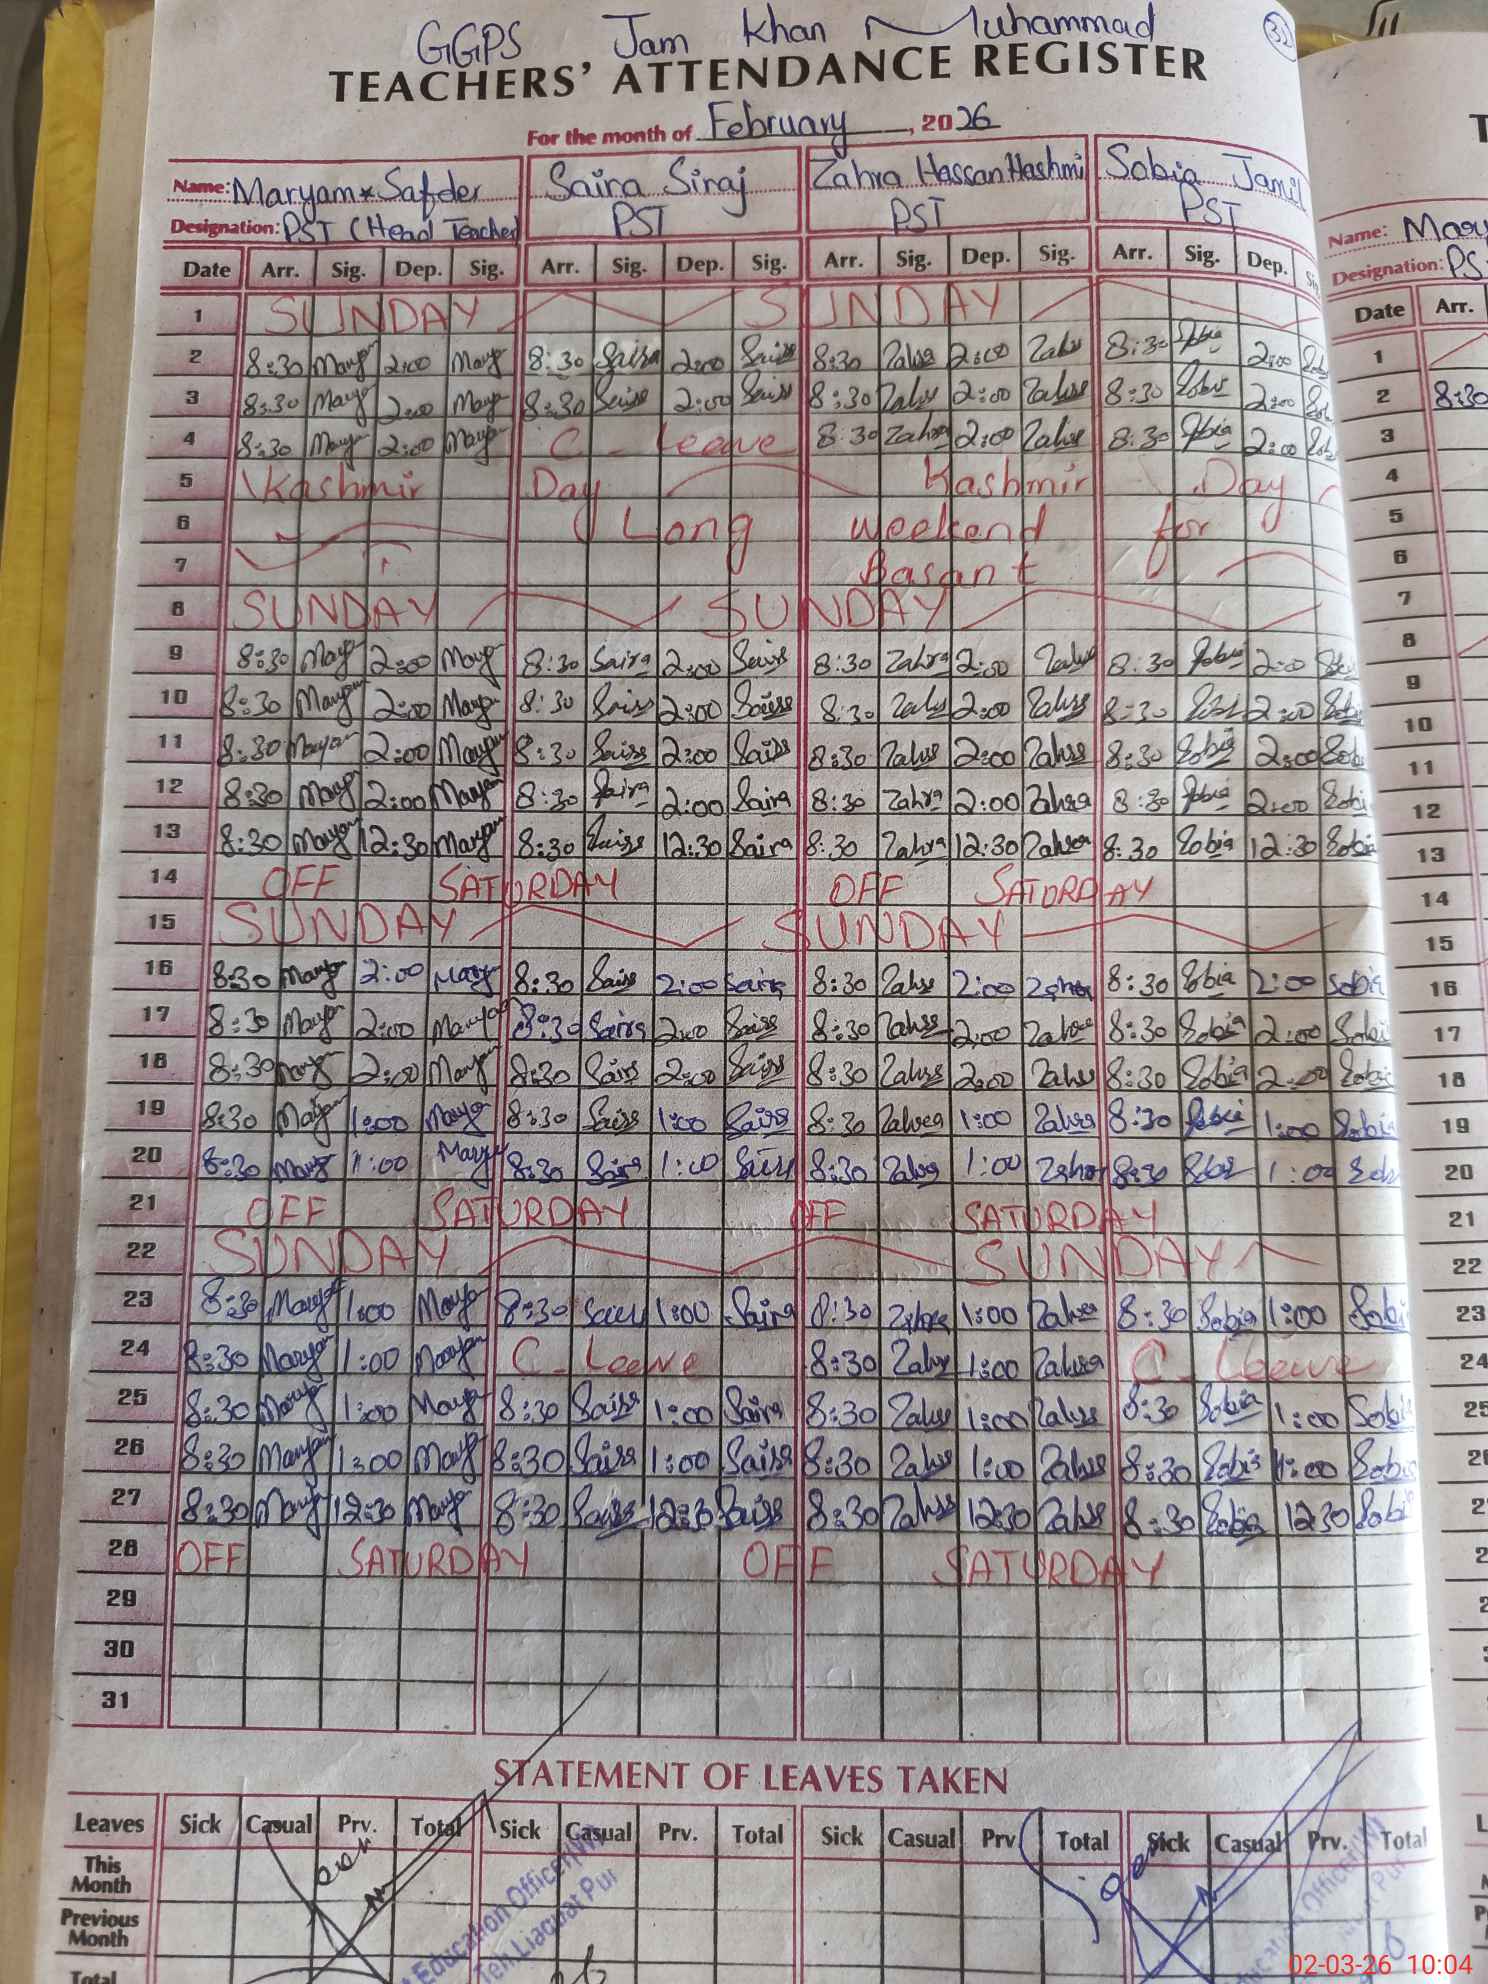 GGPS Jam Khan Muhammad
32
TEACHERS' ATTENDANCE REGISTER
For the month of February, 2026
Name: Maryam Safder Saira Siraj Zahra Hassan Hashmi Sobia Jamil
Designation: PST (Head Teacher) PST PST PST
Date Arr. Sig. Dep. Sig. Arr. Sig. Dep. Sig. Arr. Sig. Dep. Sig. Arr. Sig. Dep.
1 SUNDAY SUNDAY
2 8:30 Maryam 2:00 Mary 8:30 Saira 2:00 Saira 8:30 Zahra 2:00 Zahra 8:30 Sobia 2:00
3 8:30 Mary 2:00 Mary 8:30 Saira 2:00 Saira 8:30 Zahra 2:00 Zahra 8:30 Sobia 2:00
4 8:30 Mary 2:00 Maryam C_ Leave 8:30 Zahra 2:00 Zahra 8:30 Sobia 2:00
5 Kashmir Day Kashmir Day
6 Long weekend for
7 Basant
8 SUNDAY SUNDAY
9 8:30 Mary 2:00 Mary 8:30 Saira 2:00 Saira 8:30 Zahra 2:00 Zahra 8:30 Sobia 2:00
10 8:30 Maryam 2:00 Mary 8:30 Saira 2:00 Saira 8:30 Zahra 2:00 Zahra 8:30 Sobia 2:00 Sobia
11 8:30 Maryam 2:00 Maryam 8:30 Saira 2:00 Saira 8:30 Zahra 2:00 Zahra 8:30 Sobia 2:00 Sobia
12 8:30 Mary 2:00 Maryam 8:30 Saira 2:00 Saira 8:30 Zahra 2:00 Zahra 8:30 Sobia 2:00 Sobia
13 8:30 Maryam 12:30 Maryam 8:30 Saira 12:30 Saira 8:30 Zahra 12:30 Zahra 8:30 Sobia 12:30 Sobia
14 OFF SATURDAY OFF SATURDAY
15 SUNDAY SUNDAY
16 8:30 Mary 2:00 Mary 8:30 Saira 2:00 Saira 8:30 Zahra 2:00 Zahra 8:30 Sobia 2:00 Sobia
17 8:30 Mary 2:00 Maryam 8:30 Saira 2:00 Saira 8:30 Zahra 2:00 Zahra 8:30 Sobia 2:00 Sobia
18 8:30 Mary 2:00 Mary 8:30 Saira 2:00 Saira 8:30 Zahra 2:00 Zahra 8:30 Sobia 2:00 Sobia
19 8:30 Mary 1:00 Mary 8:30 Saira 1:00 Saira 8:30 Zahra 1:00 Zahra 8:30 Sobia 1:00 Sobia
20 8:30 Mary 1:00 Mary 8:30 Saira 1:00 Saira 8:30 Zahra 1:00 Zahra 8:30 Sobia 1:00 Sob
21 OFF SATURDAY OFF SATURDAY
22 SUNDAY SUNDAY
23 8:30 Mary 1:00 Mary 8:30 Saira 1:00 Saira 8:30 Zahra 1:00 Zahra 8:30 Sobia 1:00 Sobi
24 8:30 Maryam 1:00 Maryam C_ Leave 8:30 Zahra 1:00 Zahra C_ Leave
25 8:30 Mary 1:00 Mary 8:30 Saira 1:00 Saira 8:30 Zahra 1:00 Zahra 8:30 Sobia 1:00 Sobi
26 8:30 Maryam 1:00 Mary 8:30 Saira 1:00 Saira 8:30 Zahra 1:00 Zahra 8:30 Sobia 1:00 Sobi
27 8:30 Mary 12:30 Mary 8:30 Saira 12:30 Saira 8:30 Zahra 12:30 Zahra 8:30 Sobia 12:30 Sobi
28 OFF SATURDAY OFF SATURDAY
29
30
31
STATEMENT OF LEAVES TAKEN
Leaves Sick Casual Prv. Total Sick Casual Prv. Total Sick Casual Prv. Total Sick Casual Prv. Total
This Month
Previous Month
Total
Education Officer
Teh Liaquat Pur
Name: Mary
Designation: PS
Date Arr.
1
2 8:30
3
4
5
6
7
8
9
10
11
12
13
14
15
16
17
18
19
20
21
22
23
24
25
02-03-26 10:04